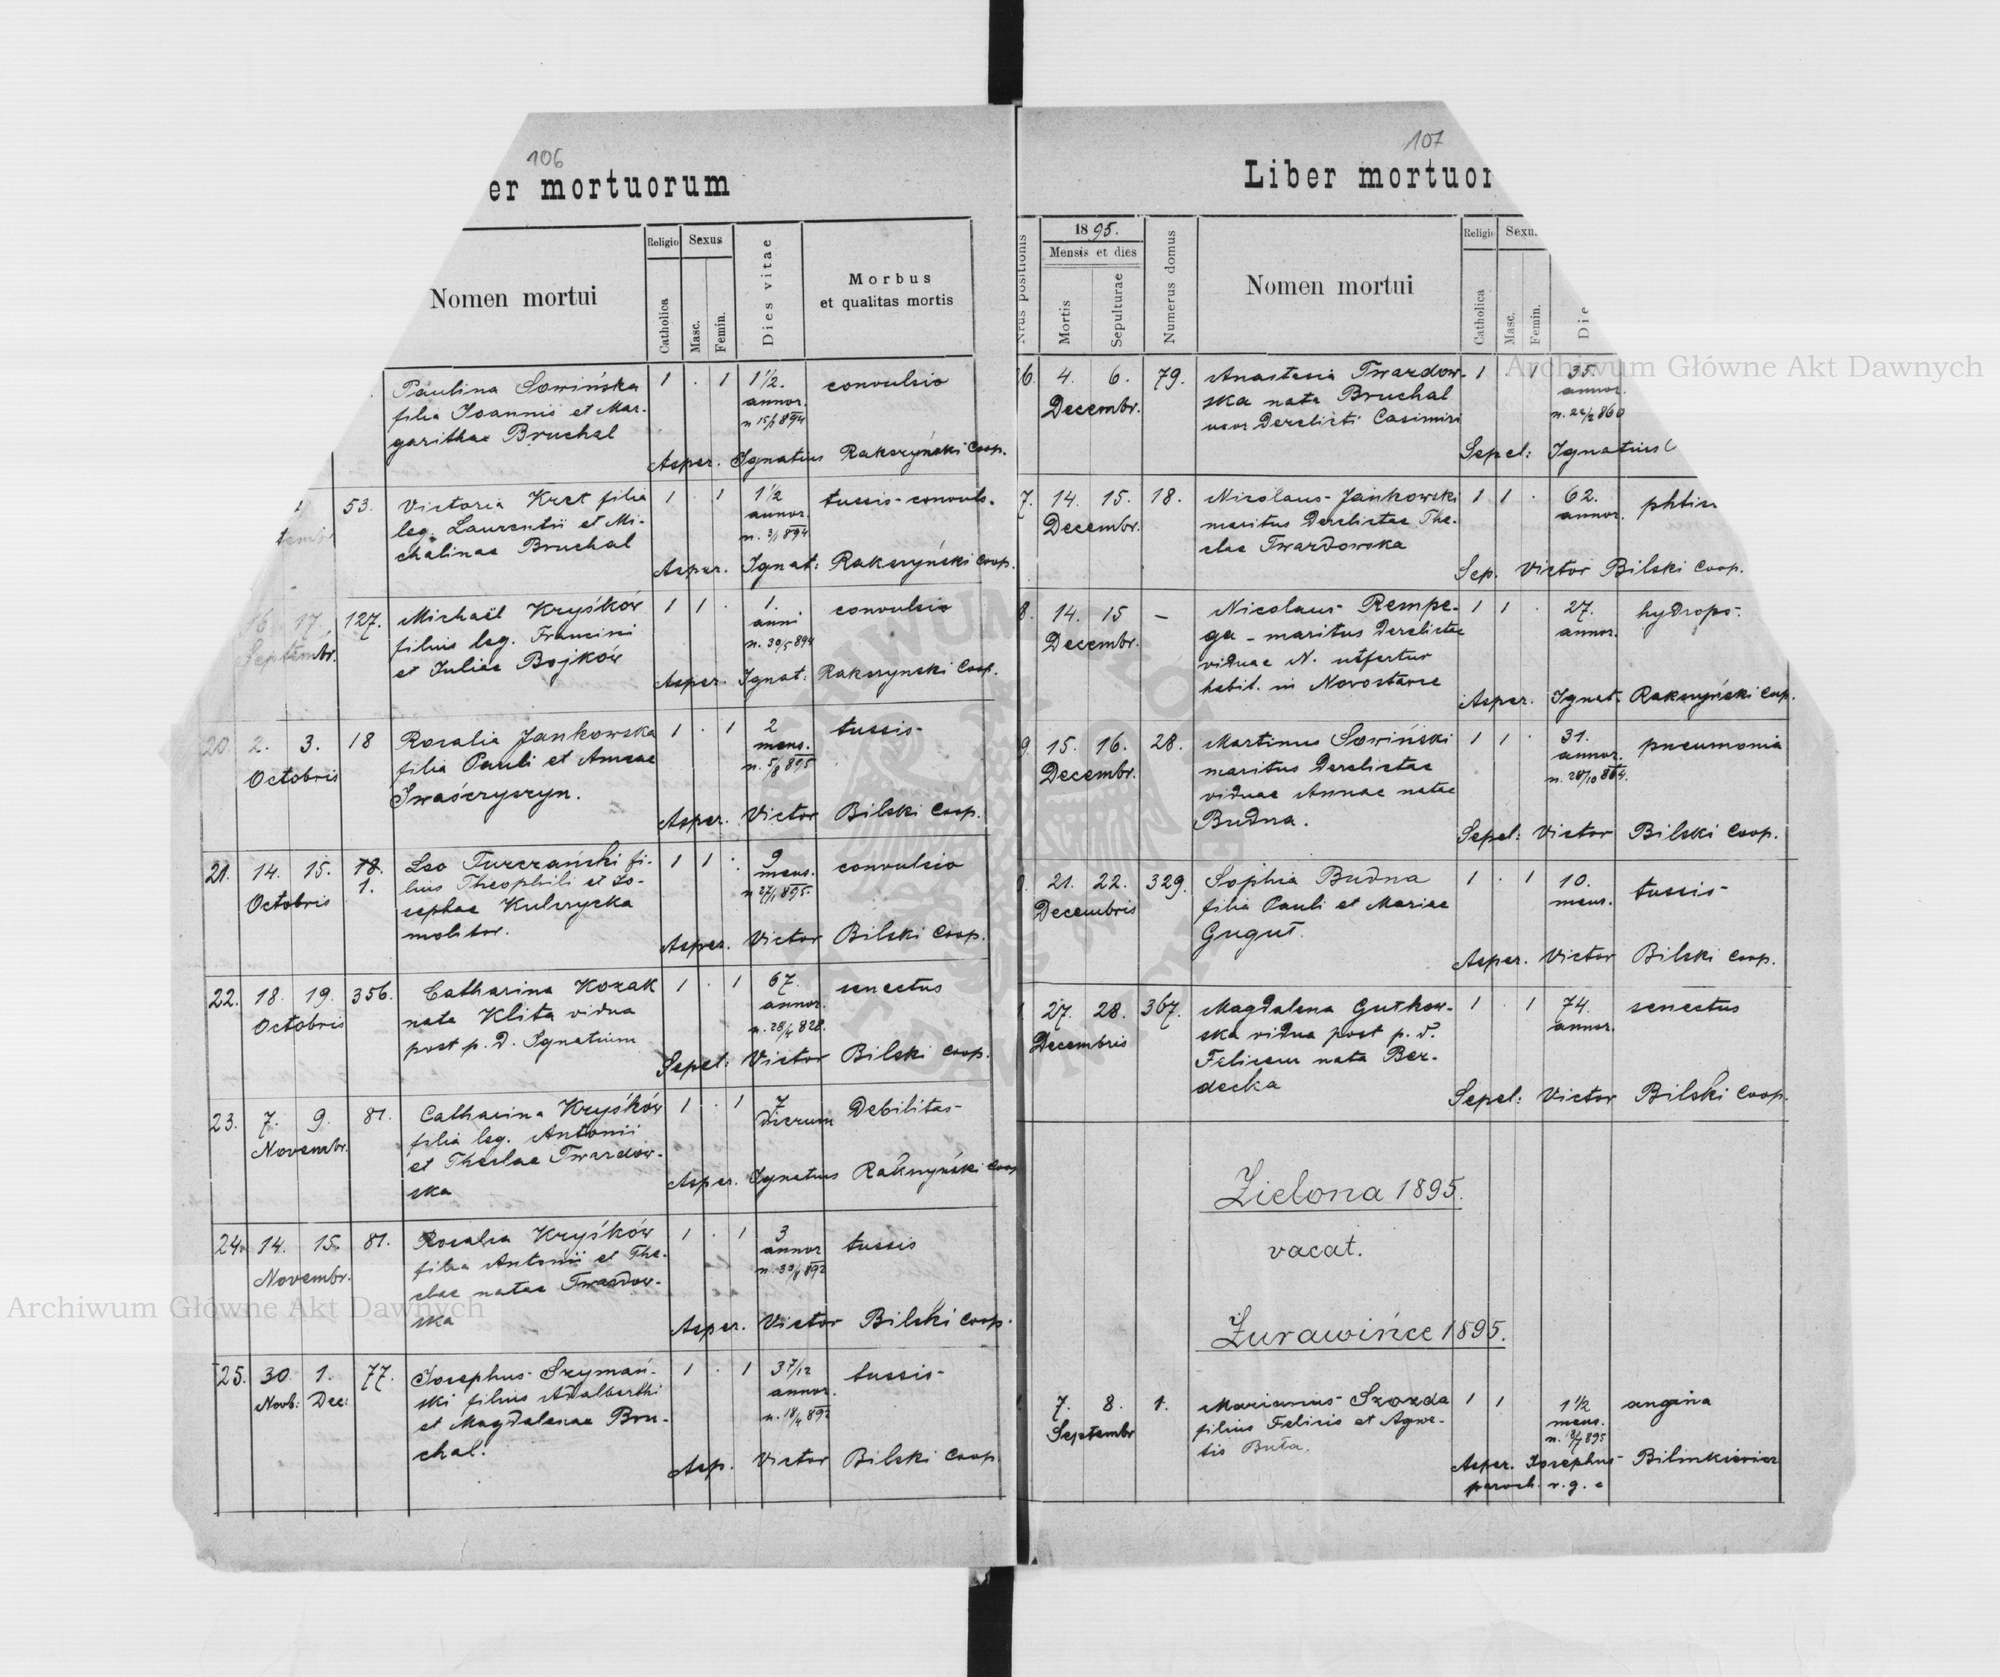 106
er mortuorum
Nomen mortui
Religio
Sexus
Catholica
Masc.
Femin.
Dies vitae
Morbus
et qualitas mortis
Paulina Sowińska 1 . 1 1½. convulsio
filia Joannis et Mar- annor.
garithae Bruchal
Asper. Ignatius Rakszyński Coop.
53. Victoria Kret filia 1 . 1 1½ tussis-convuls.
leg. Laurentii et Mi- annor.
chalinae Bruchal
Asper. Ignat: Rakszyński Coop.
16 17. 127. Michaël Kryśków 1 1 . 1. convulsio
Septembr. filius leg. Francisci anni
et Juliae Bojków n. 30/5 894
Asper. Ignat: Rakszynski Coop.
20. 2. 3. 18 Rosalia Jankowska 1 . 1 2 tussis-
Octobris filia Pauli et Annae mens.
Iwaśczyszyn. n. 5/8 895
Asper. Victor Bilski Coop.
21. 14. 15. 78. Leo Turczański fi- 1 1 . 9 convulsio
Octobris 1. lius Theophili et Jo- mens.
sephae Kulczycka n 27/1 895.
molitor.
Asper. Victor Bilski Coop.
22. 18. 19. 356. Catharina Kozak 1 . 1 67. senectus
Octobris nata Klita vidua annor.
post p. d. Ignatium n. 28/4 828.
Sepel: Victor Bilski Coop.
23. 7. 9. 81. Catharina Kryśków 1 . 1 7 Debilitas-
Novembr. filia leg. Antonii dierum
et Theclae Twardow-
ska
Asper. Ignatius Rakszyński Coop
24. 14. 15. 81. Rosalia Kryśków 1 . 1 3 tussis
Novembr. filia Antonii et The- annor
clae natae Twardow- n. 30/8 892
ska
Asper. Victor Bilski Coop.
25. 30. 1. 77. Josephus Szymań- 1 . 1 3 7/12 tussis-
Novb: Dec: ski filius Adalberthi annor.
et Magdalenae Bru- n. 18/4 892
chal.
Asp. Victor Bilski Coop
107
Liber mortuor
Nrus positionis
1895.
Mensis et dies
Mortis
Sepulturae
Numerus domus
Nomen mortui
Religio
Sexu
Catholica
Masc.
Femin.
Die
6. 4. 6. 79. Anastasia Twardow- 1 . 1 35.
Decembr. ska nata Bruchal annor.
uxor derelicti Casimiri n. 22/2 860
Sepel: Ignatius
7. 14. 15. 18. Nicolaus Jankowski 1 1 . 62.
Decembr. maritus derelictae The- annor.
clae Twardowska
Sep. Victor Bilski Coop.
8. 14. 15 — Nicolaus Rempe- 1 1 . 27. hydrops-
Decembr. ga - maritus derelictae annor.
viduae N. utfertur
habit. in Novostawce
Asper. Ignat. Rakszyński Coop.
9. 15. 16. 28. Martinus Sowiński 1 1 . 31. pneumonia
Decembr. maritus derelictae annor.
viduae Annae natae n. 28/10 864.
Budna.
Sepel: Victor Bilski Coop.
21. 22. 329. Sophia Budna 1 . 1 10. tussis-
Decembris filia Pauli et Mariae mens.
Gugut.
Asper. Victor Bilski Coop.
27. 28. 367. Magdalena Gutkow- 1 . 1 74. senectus
Decembris ska vidua post p. d. annor.
Felicem nata Ber-
decka
Sepel: Victor Bilski Coop.
Zielona 1895.
vacat.
Żurawińce 1895.
7. 8. 1. Marianus Szozda 1 1 1½ angina
Septembr filius Felicis et Agne- mens.
tis Buta. n. 18/7 895
Asper. Josephus Bilinkiewicz
paroch. r. g. c
Archiwum Główne Akt Dawnych
Archiwum Główne Akt Dawnych